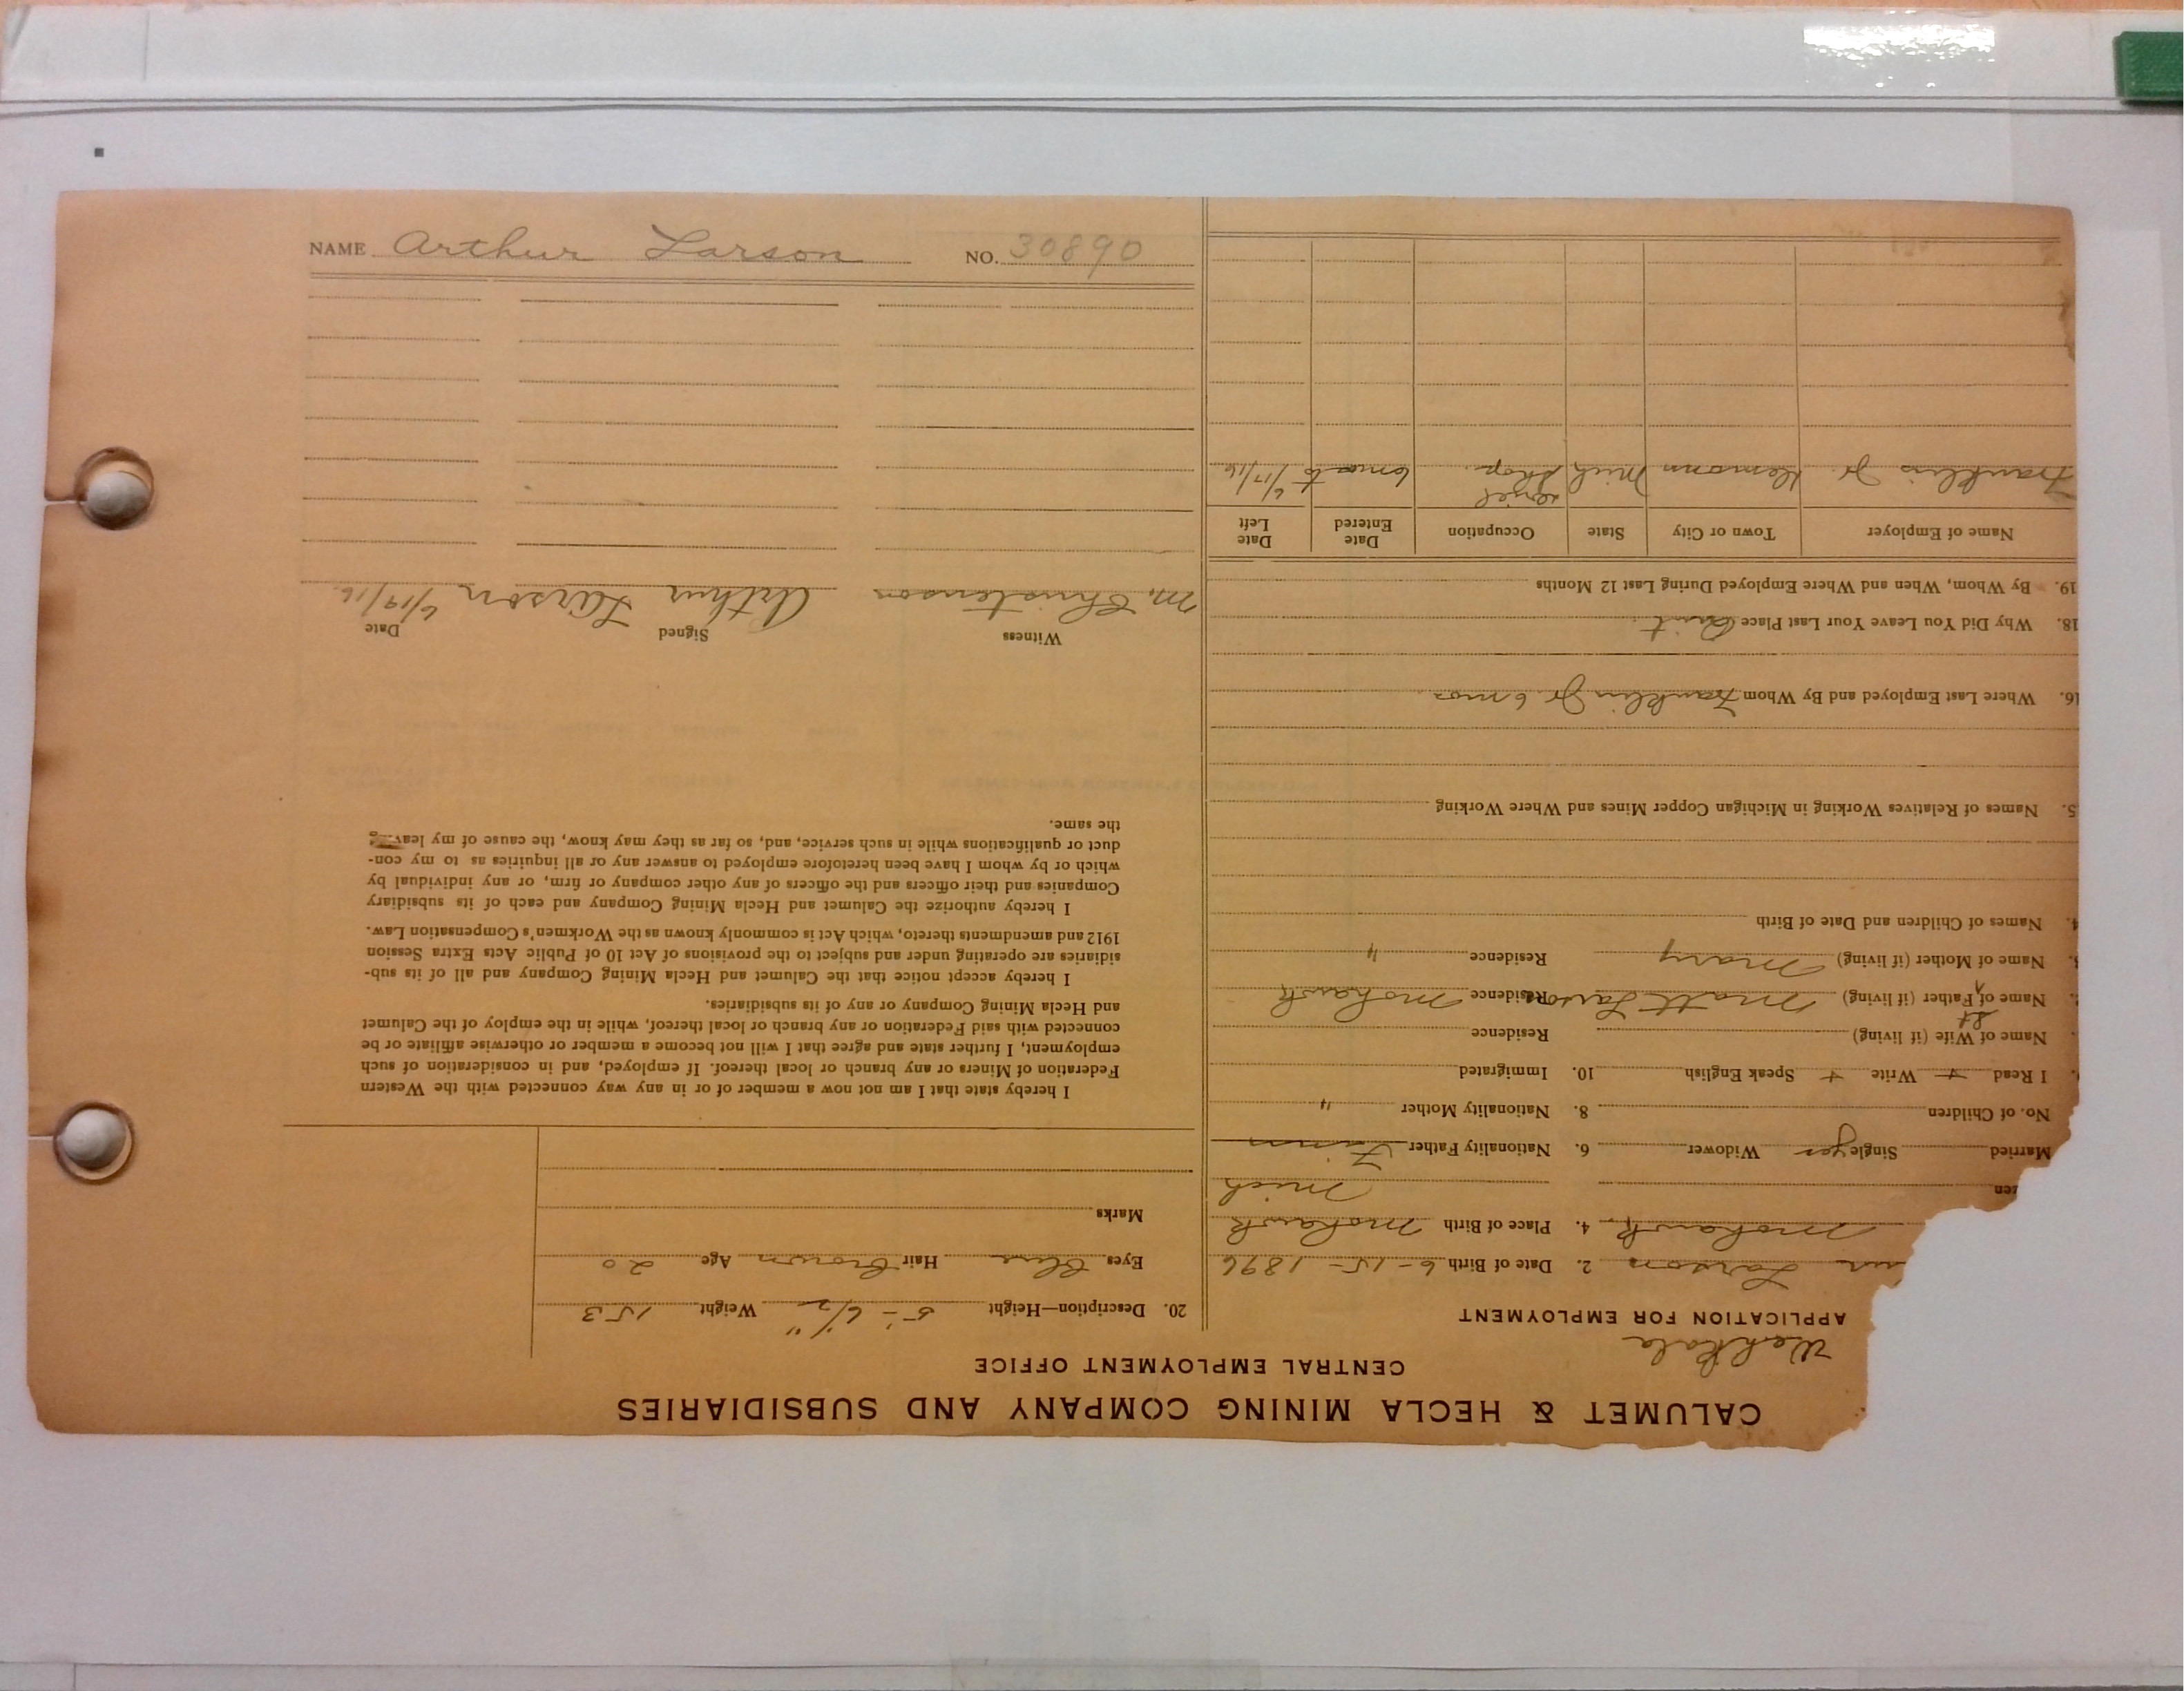 NAME Arthur Larson NO. 30890
CALUMET & HECLA MINING COMPANY AND SUBSIDIARIES
CENTRAL EMPLOYMENT OFFICE
APPLICATION FOR EMPLOYMENT
ur Larson 2. Date of Birth 6-15-1896
Mohawk 4. Place of Birth Mohawk
zen Mich
Married Single yes Widower 6. Nationality Father Finns
No. of Children 8. Nationality Mother "
I Read + Write + Speak English 10. Immigrated
Name of Wife (if living) Residence
Name of St Father (if living) Matt Larson Residence Mohawk
Name of Mother (if living) Mary Residence "
4. Names of Children and Date of Birth
5. Names of Relatives Working in Michigan Copper Mines and Where Working
16. Where Last Employed and By Whom Franklin Jr 6 mos.
18. Why Did You Leave Your Last Place Quit
19. By Whom, When and Where Employed During Last 12 Months
Name of Employer Town or City State Occupation Date Entered Date Left
Franklin Jr. Mich Shop. 6 mo to 6/17/16
20. Description—Height 5'-6 1/2" Weight 153
Eyes Blue Hair Brown Age 20
Marks
I hereby state that I am not now a member of or in any way connected with the Western
Federation of Miners or any branch or local thereof. If employed, and in consideration of such
employment, I further state and agree that I will not become a member or otherwise affiliate or be
connected with said Federation or any branch or local thereof, while in the employ of the Calumet
and Hecla Mining Company or any of its subsidiaries.
I hereby accept notice that the Calumet and Hecla Mining Company and all of its sub-
sidiaries are operating under and subject to the provisions of Act 10 of Public Acts Extra Session
1912 and amendments thereto, which Act is commonly known as the Workmen's Compensation Law.
I hereby authorize the Calumet and Hecla Mining Company and each of its subsidiary
Companies and their officers and the officers of any other company or firm, or any individual by
which or by whom I have been heretofore employed to answer any or all inquiries as to my con-
duct or qualifications while in such service, and, so far as they may know, the cause of my leaving
the same.
Witness Signed Date
M. Christenson Arthur Larson 6/19/16.